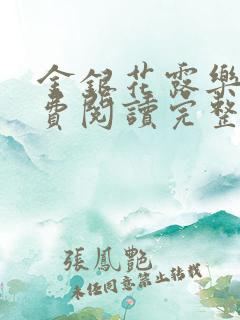 金銀花露樂
費閱讀完整
張鳳艷
未经同意禁止转载